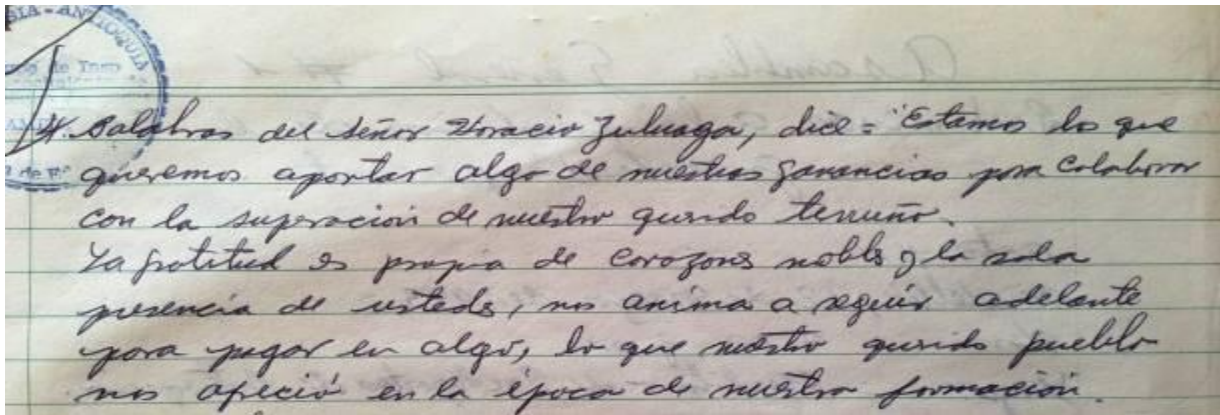 SIA - ANTIOQUIA
4. Palabras del señor Horacio Zuluaga, dice = "Estamos los que
queremos aportar algo de nuestras ganancias para colaborar
con la superación de nuestro querido terruño.
La gratitud es propia de corazones nobles y la sola
presencia de ustedes, nos anima a seguir adelante
para pagar en algo, lo que nuestro querido pueblo
nos ofreció en la época de nuestra formación.